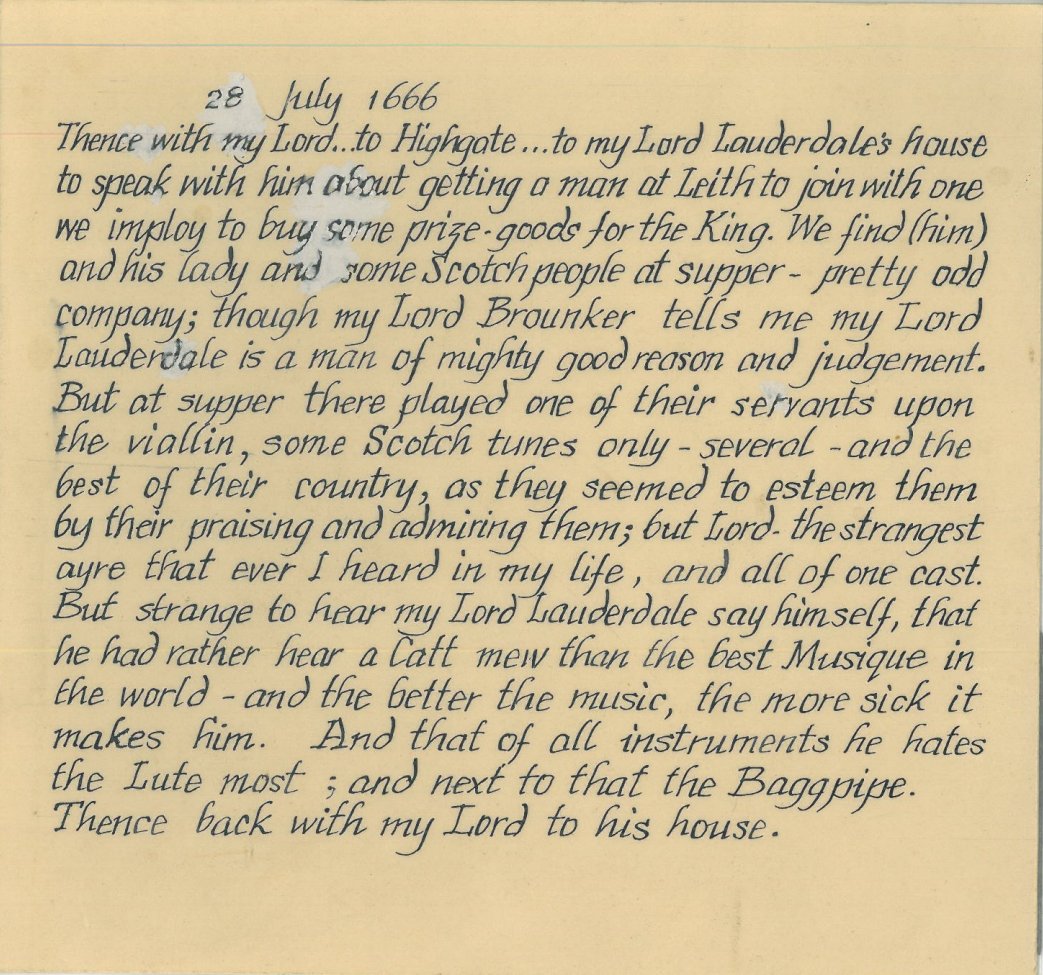 28 July 1666
Thence with my Lord...to Highgate...to my Lord Lauderdale's house
to speak with him about getting a man at Leith to join with one
we imploy to buy some prize-goods for the King. We find (him)
and his lady and some Scotch people at supper - pretty odd
company; though my Lord Brounker tells me my Lord
Lauderdale is a man of mighty good reason and judgement.
But at supper there played one of their servants upon
the viallin, some Scotch tunes only - several - and the
best of their country, as they seemed to esteem them
by their praising and admiring them; but Lord - the strangest
ayre that ever I heard in my life, and all of one cast.
But strange to hear my Lord Lauderdale say himself, that
he had rather hear a Catt mew than the best Musique in
the world - and the better the music, the more sick it
makes him. And that of all instruments he hates
the Lute most ; and next to that the Baggpipe.
Thence back with my Lord to his house.